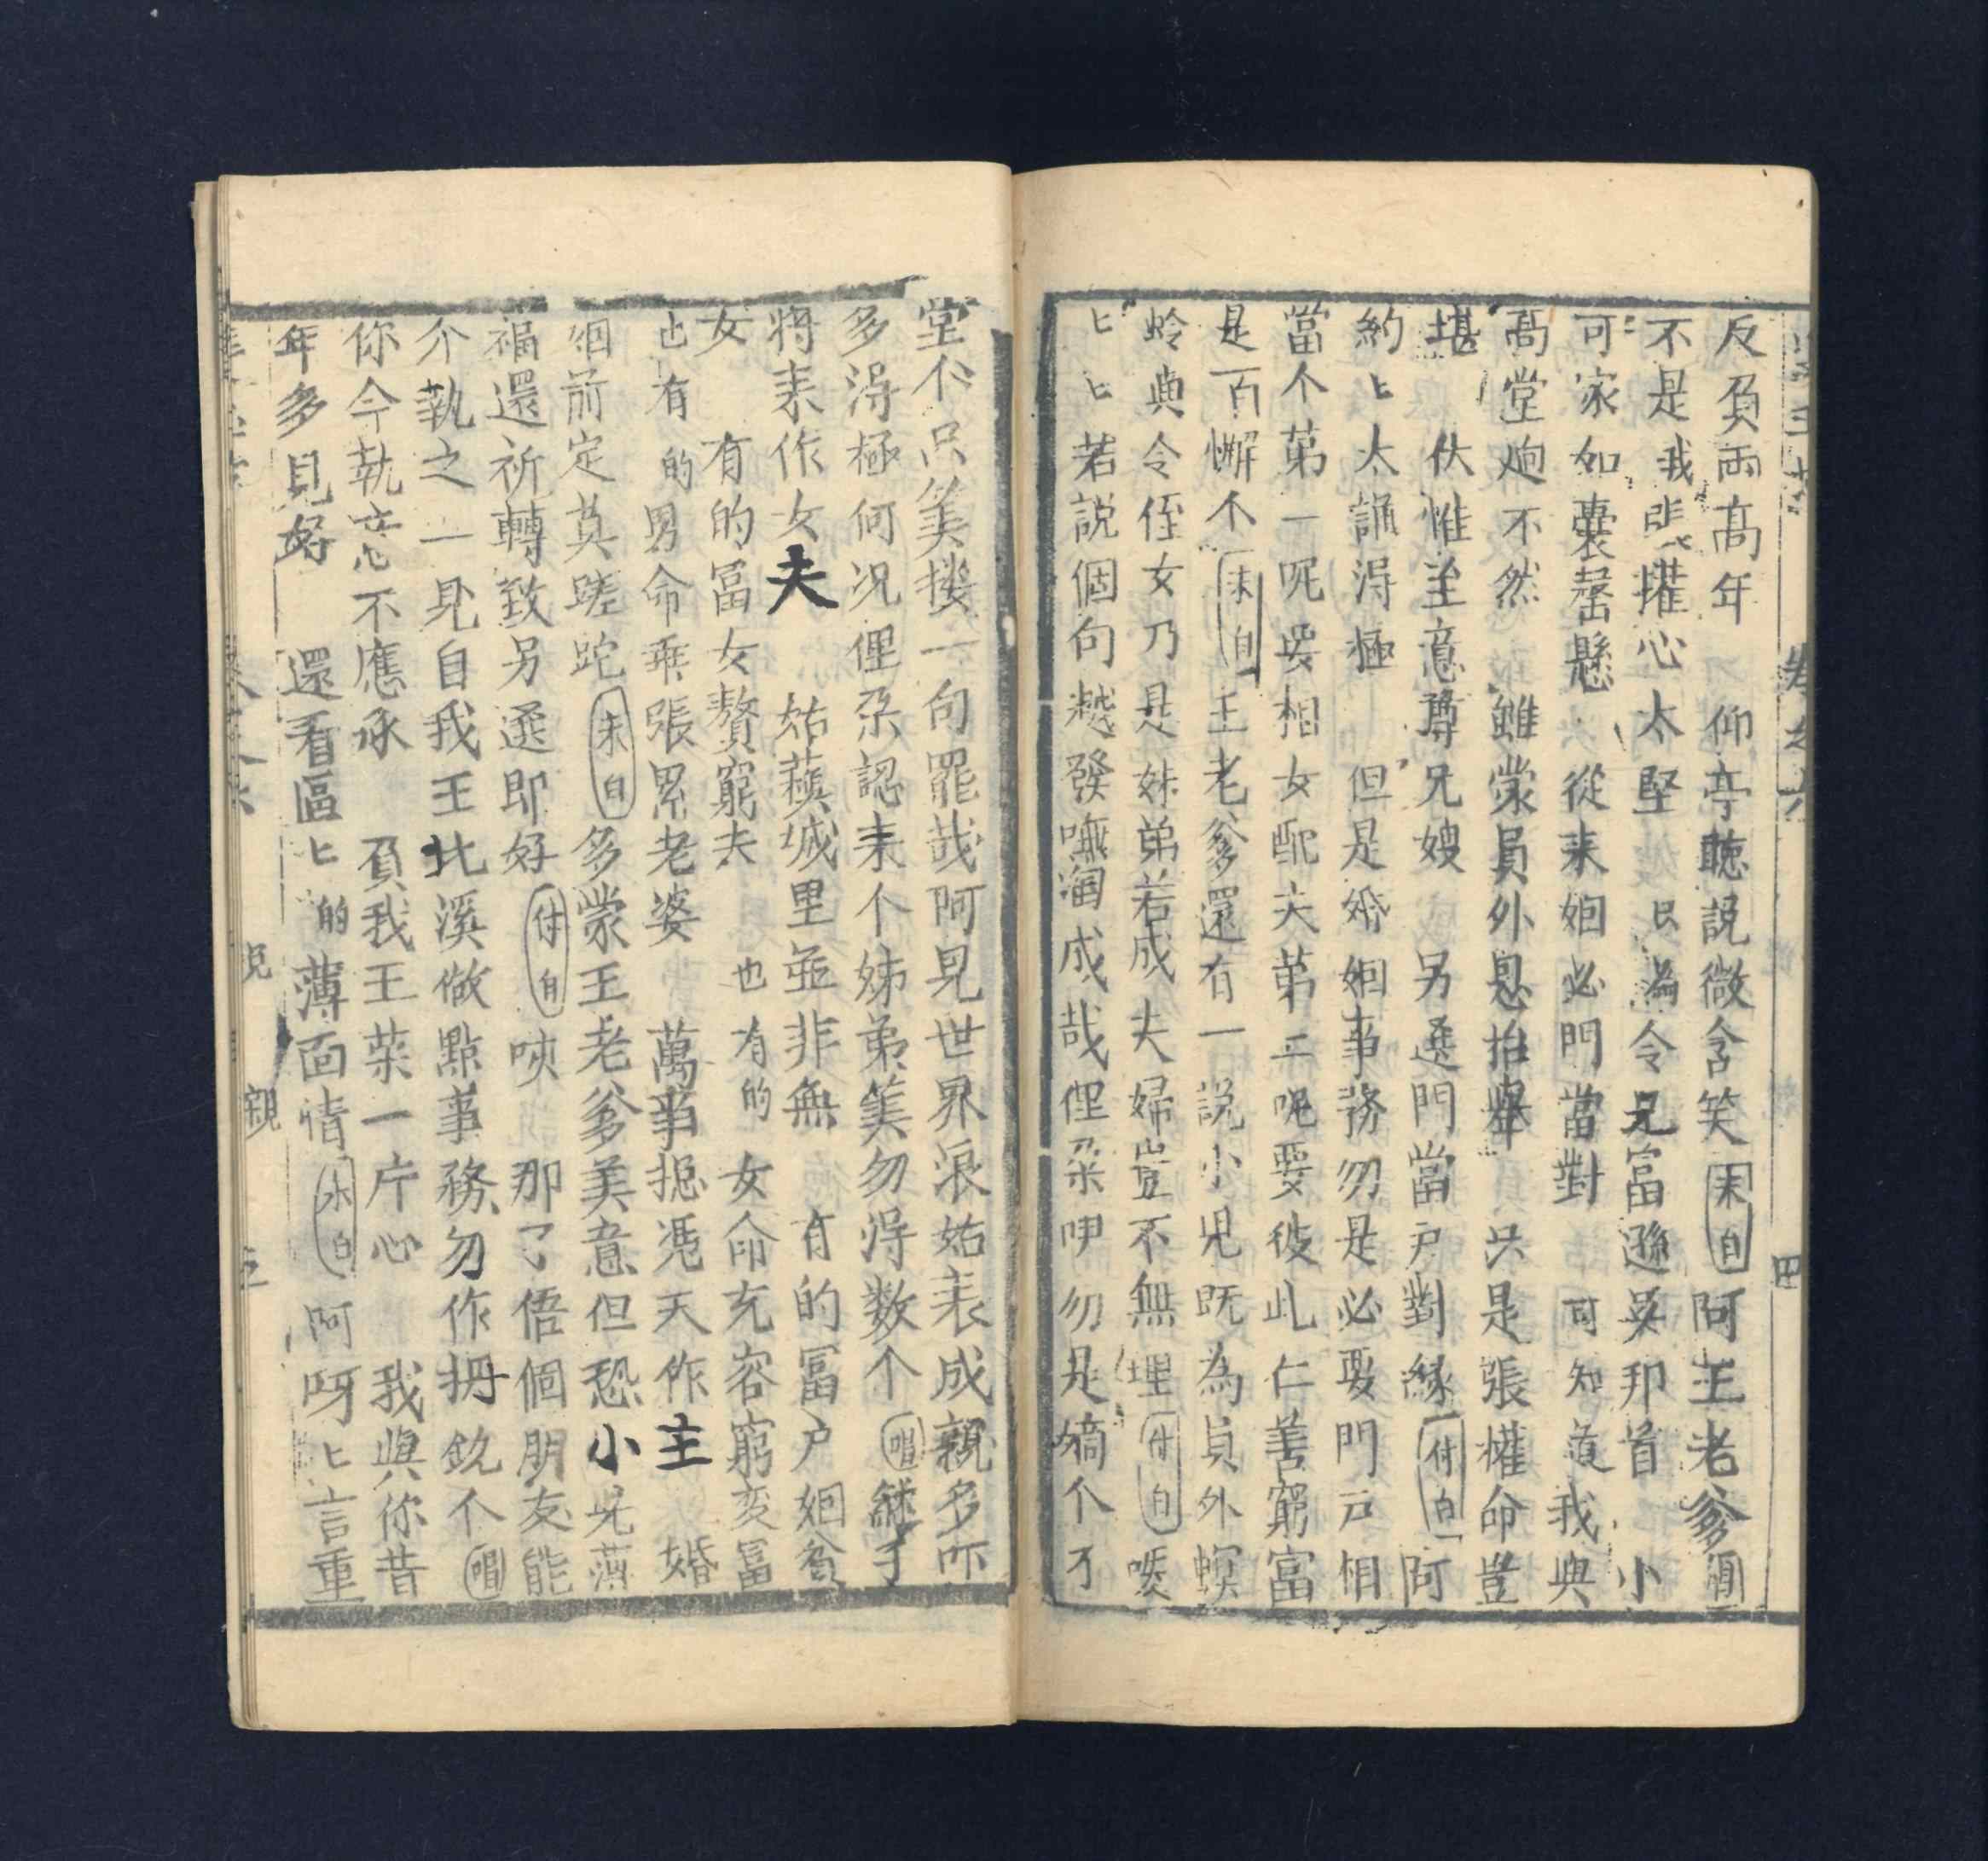 卷之六
四
反負兩高年　仰亭聽説微含笑　末白　阿王老爹酒
不是我張㩲心太堅　只為令兄富遜吳邦首　小
可家如囊罄懸　從來姻必門當對　可知道我與
高堂炮不然　雖蒙員外恩抬舉　只是張㩲命豈
堪　伏惟至意尊兄嫂　另選門當戸對緣　付白　阿
約匕太誦淂極　但是婚姻事務勿是必要門戸相
當个第一呢要相女配夫第二呢要彼此仁善窮富
是百懈不　末白　王老爹還有一説小児既為員外螟
蛉與令侄女乃是妹弟若成夫婦豈不無理　付白　嗳
匕匕若説個句越發嘸淘成哉俚朶咿勿是嫡个不
堂个只筭摟一句罷哉阿見世界浪姑表成親多吓
多淂極何况俚朶認来个姊弟筭勿淂数个　唱　繇子
將来作女夫　姑蘓城里並非無　有的冨户姻貧
女　有的冨女贅窮夫　也有的女命充容窮変冨
也有的男命乖張累老婆　萬事揔憑天作主　婚
姻前定莫蹉跎　末白　多蒙王老爹美意但恐小児薄
福還祈轉致另選即好　付白　唊那了悟個朋友能
介執之一見自我王北溪做點事務勿作拇欽个　唱
你今執意不應承　負我王菜一片心　我與你昔
年多見好　還看區匕的薄面情　末白　阿呀匕言重
説親
五